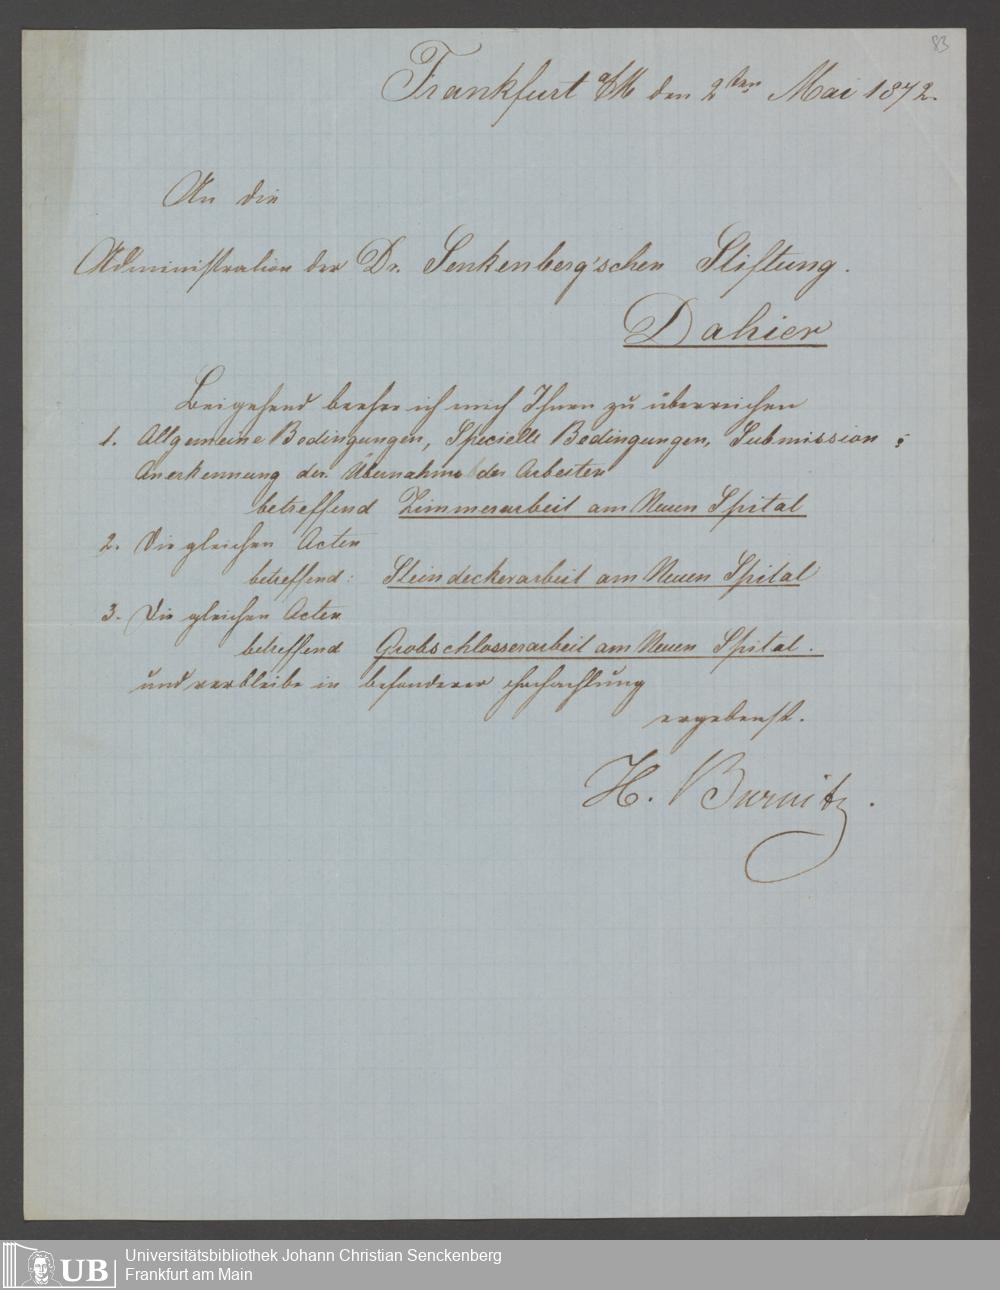 83
Frankfurt a/M den 2ten Mai 1872.
An die
Administration der Dr. Senkenberg'schen Stiftung.
Dahier
Beigehend beehre ich mich Ihnen zu überreichen
1. Allgemeine Bedingungen, Specielle Bedingungen, Submission;
Anerkennung der Übernahme der Arbeiten
betreffend Zimmerarbeit am Neuen Spital
2. Die gleichen Acten
betreffend: Steindeckerarbeit am Neuen Spital
3. Die gleichen Acten
betreffend Grobschlosserarbeit am Neuen Spital.
und verbleibe in besonderer Hochachtung
ergebenst.
H. Burnitz.
UB
Universitätsbibliothek Johann Christian Senckenberg
Frankfurt am Main